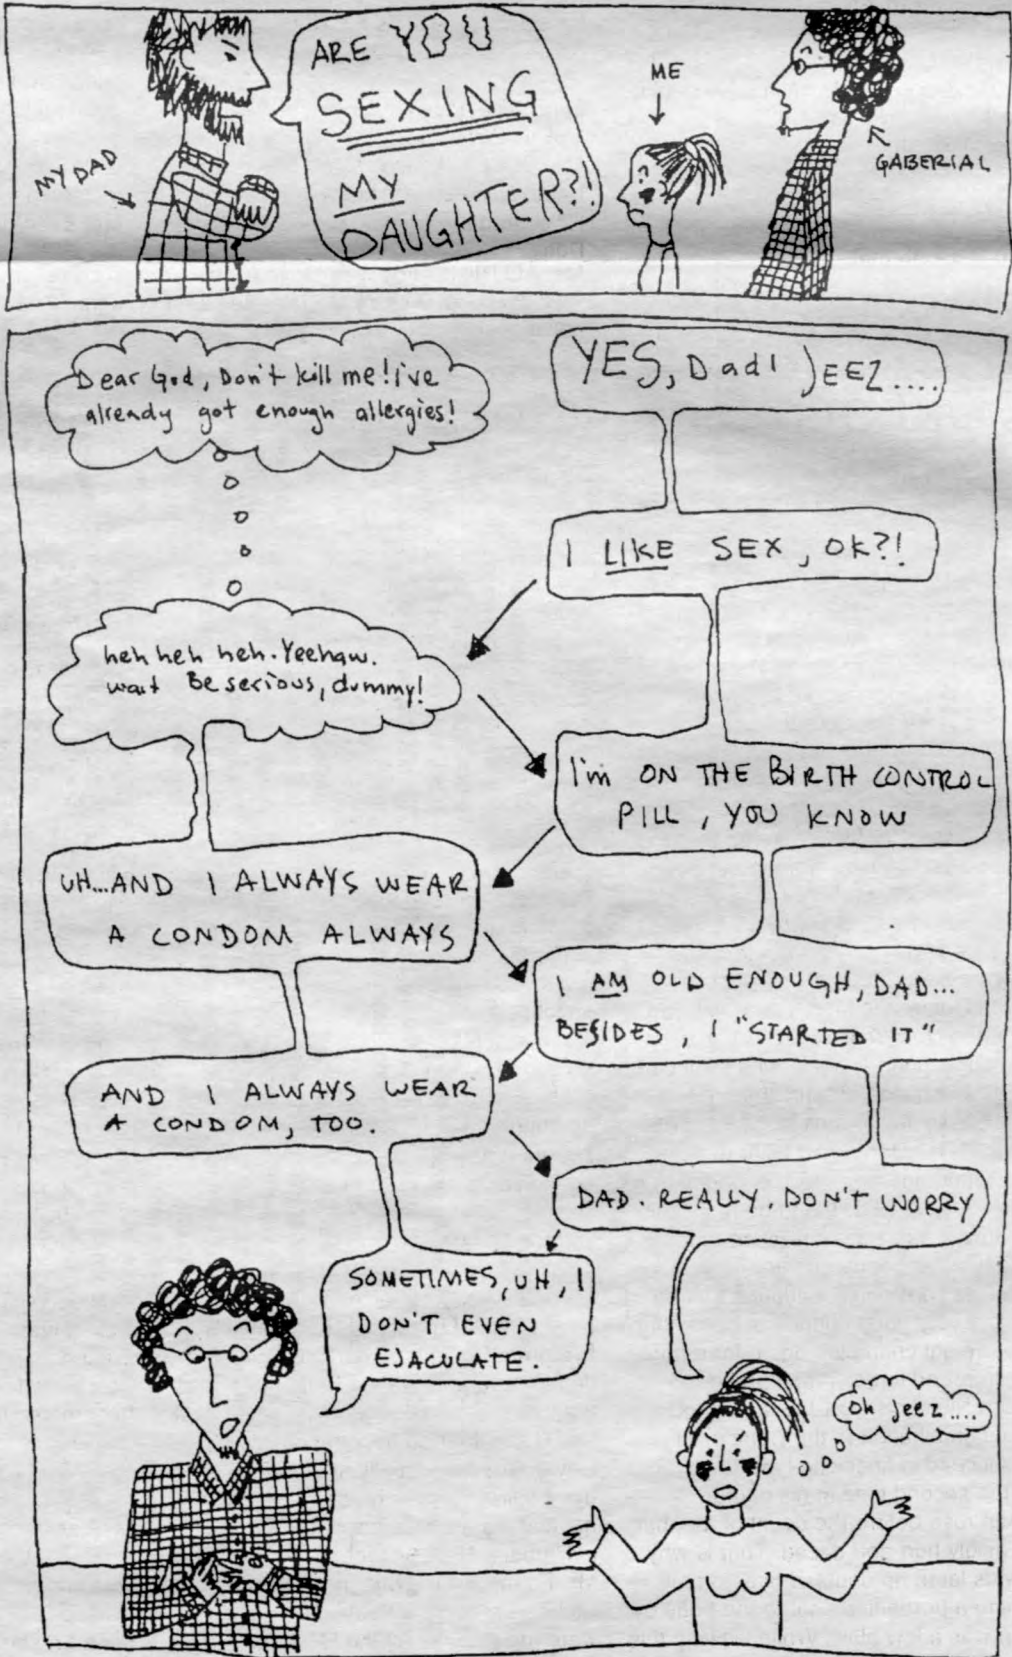 ARE YOU
SEXING
MY
DAUGHTER?!
MY DAD
ME
GABERIAL
Dear God, Don't kill me! i've
already got enough allergies!
YES, Dad! JEEZ....
I LIKE SEX, OK?!
heh heh heh. Yeehaw.
wait Be serious, dummy!
I'm ON THE BIRTH CONTROL
PILL, YOU KNOW
UH...AND I ALWAYS WEAR
A CONDOM ALWAYS
I AM OLD ENOUGH, DAD...
BESIDES, I "STARTED IT"
AND I ALWAYS WEAR
A CONDOM, TOO.
DAD. REALLY. DON'T WORRY
SOMETIMES, UH, I
DON'T EVEN
EJACULATE.
Oh Jeez....